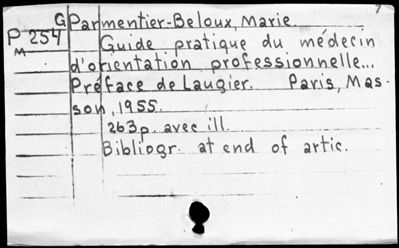 G Parmentier-Beloux, Marie.
P 254 Guide pratique du médecin
M d'orientation professionnelle...
Préface de Laugier. Paris, Mas-
son, 1955.
263p. avec ill.
Bibliogr. at end of artic.